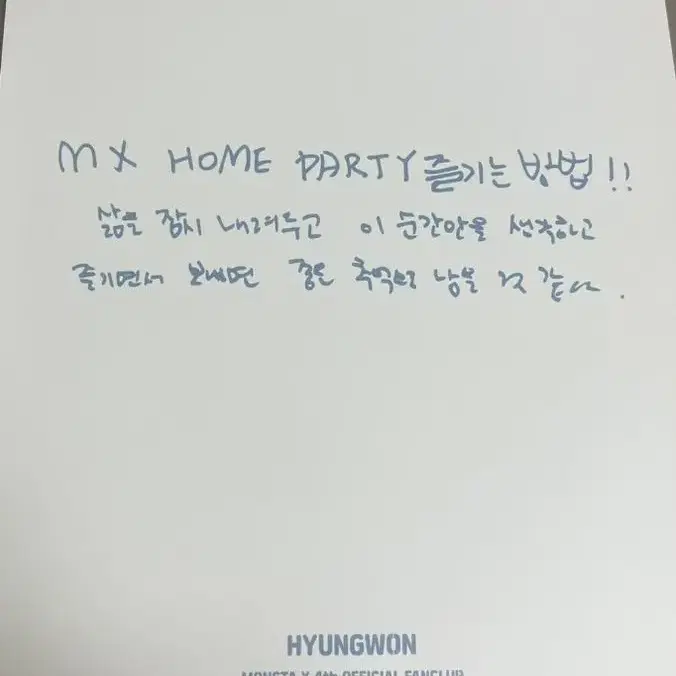 MX HOME PARTY 즐기는 방법!!
삶을 잠시 내려두고 이 순간만을 생각하고
즐기면서 보내면 좋은 추억으로 남을 것 같다.
HYUNGWON
MONSTA X 4th OFFICIAL FANCLUB